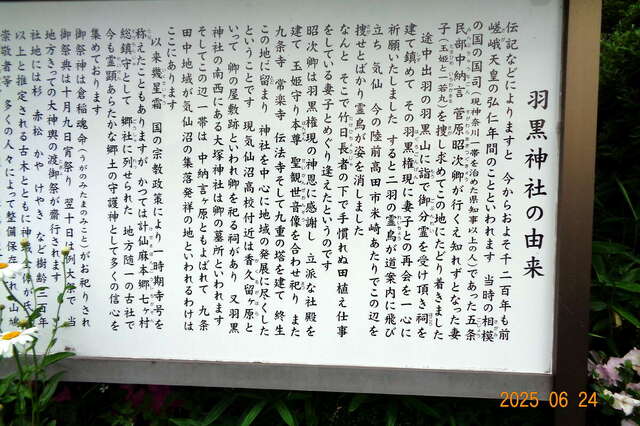 羽黒神社の由来
伝記などによりますと 今からおよそ千二百年も前
嵯峨天皇の弘仁年間のことといわれます 当時の相模
の国の国司(現神奈川一帯を治めた県知事以上の人)であった五条
民部中納言 菅原昭次卿が行くえ知れずとなった妻
子(玉姫と一若丸)を捜し求めてこの地にたどり着きました
途中出羽の羽黒山に詣で御分霊を受け頂き祠を
建て鎮めて その羽黒権現に妻子との再会を一心に
祈願いたしました すると二羽の霊烏が道案内に飛び
立ち 気仙 今の陸前高田市米崎あたりでこの辺を
捜せとばかり霊烏が姿を消しました
なんと そこで竹日長者の下で手慣れぬ田植え仕事
をしている妻子とめぐり逢えたというのです
昭次卿は羽黒権現の神恩に感謝し 立派な社殿を
建て 玉姫守り本尊 聖観世音像を合わせ祀り また
九条寺 常楽寺 伝法寺そして九重の塔を建て 終生
この地に留まり 神社を中心に地域の発展に尽くした
ということです 現気仙沼高校付近は香久留ヶ原と
いって 卿の屋敷跡といわれ卿を祀る祠があり 又羽黒
神社の南西にある大塚神社は卿の墓所といわれます
そしてこの辺一帯は 中納言ヶ原ともよばれて 九条
田中地域が気仙沼の集落発祥の地といわれるわけは
ここにあります
以来幾星霜 国の宗教政策により 一時期寺号を
称えたこともありますが かつては計仙麻本郷六ヶ村
総鎮守として 郷社に列せられた 地方随一の古社で
今も霊顕あらたかな郷土の守護神として多くの信心を
集めております
御祭神は倉稲魂命(うがのみたまのみこと)がお祀りされ
御祭典は十月九日宵祭り 翌十日は例大祭で 当
地方きっての大神輿の渡御祭が齋行されます
社地には杉 赤松 かや けやき など樹齢三百年
以上と推定される古木とともに神
崇敬者等 多くの人々によって整備保存
2025 06 24